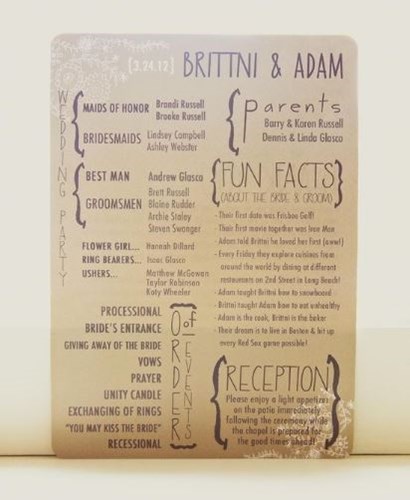 [3.24.12] BRITTNI & ADAM
WEDDING PARTY
MAIDS OF HONOR Brandi Russell
Brooke Russell
BRIDESMAIDS Lindsey Campbell
Ashley Webster
BEST MAN Andrew Glasco
GROOMSMEN Brett Russell
Blaine Rudder
Archie Staley
Steven Swanger
FLOWER GIRL... Hannah Dillard
RING BEARER... Isaac Glasco
USHERS... Matthew McGowan
Taylor Robinson
Katy Wheeler
ORDER of EVENTS
PROCESSIONAL
BRIDE'S ENTRANCE
GIVING AWAY OF THE BRIDE
VOWS
PRAYER
UNITY CANDLE
EXCHANGING OF RINGS
"YOU MAY KISS THE BRIDE"
RECESSIONAL
Parents
Barry & Karen Russell
Dennis & Linda Glasco
FUN FACTS
(ABOUT THE BRIDE & GROOM)
· Their first date was Frisbee Golf!
· Their first movie together was Iron Man
· Adam told Brittni he loved her first (aww!)
· Every Friday they explore cuisines from
around the world by dining at different
restaurants on 2nd Street in Long Beach!
· Adam taught Brittni how to snowboard
· Brittni taught Adam how to eat unhealthy
· Adam is the cook, Brittni is the baker
· Their dream is to live in Boston & hit up
every Red Sox game possible!
RECEPTION
Please enjoy a light appetizer
on the patio immediately
following the ceremony while
the chapel is prepared for
the good times ahead!